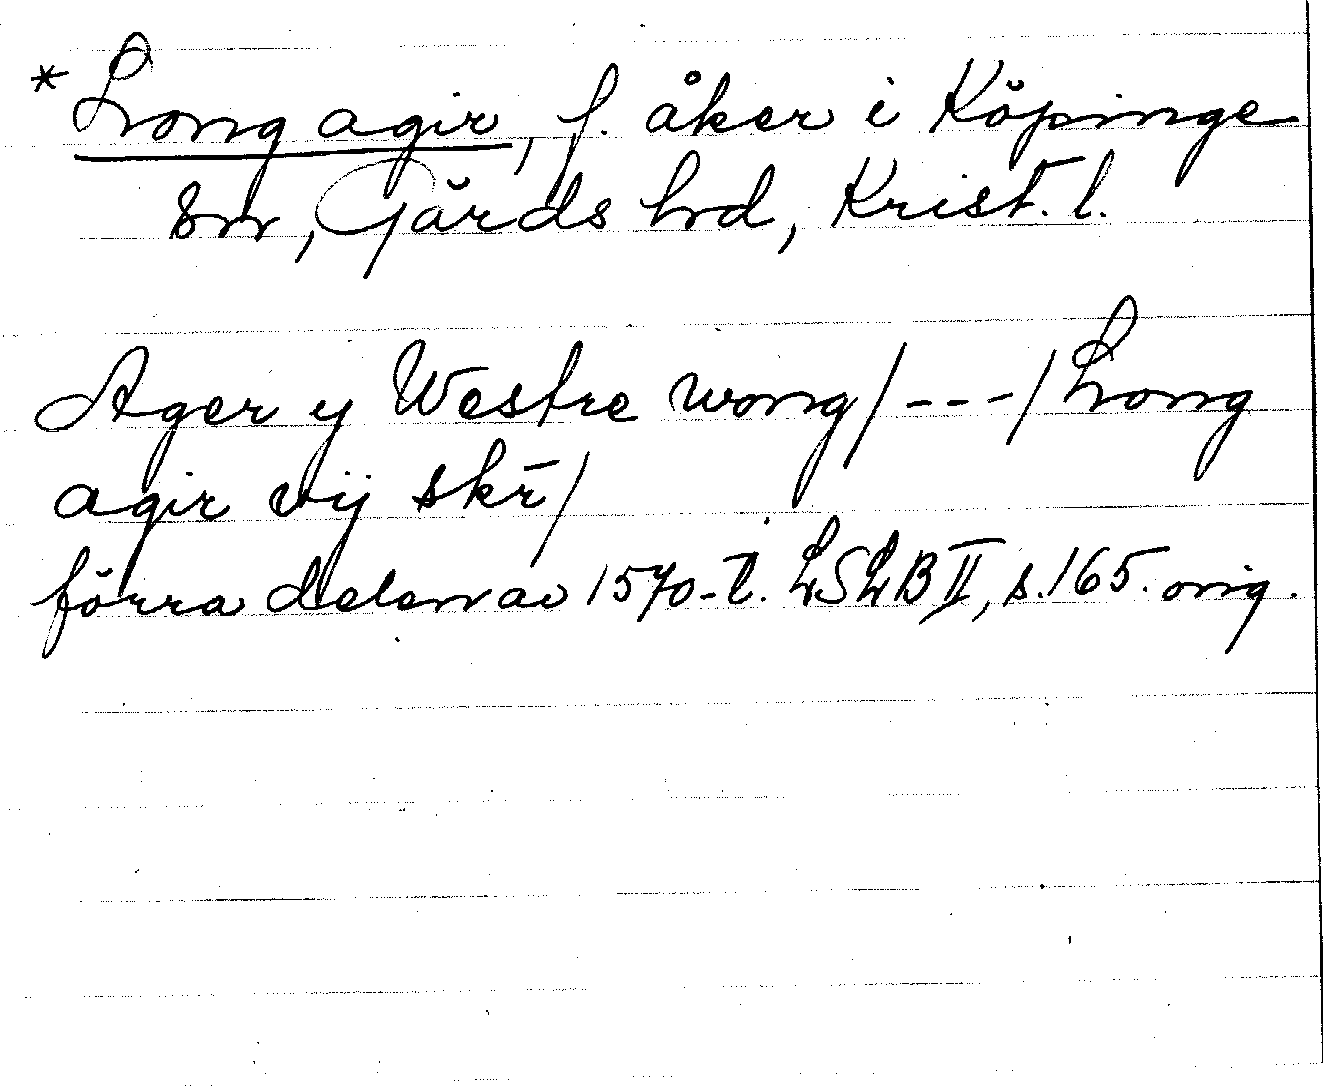 *Long agir, f. åker i Köpinge
sn, Gärds hd, Krist. l.
Ager y Westre wong/---/Long
agir vij skr̄/
förra delen av 1570-t. LSLB II, s.165. orig.